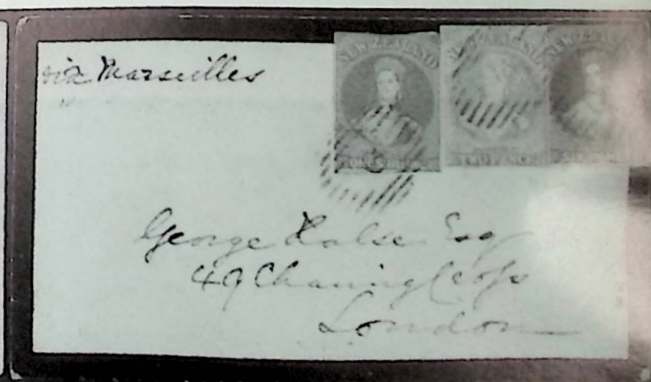 via Marseilles
NEW ZEALAND
NEW ZEALAND
NEW ZEALAND
TWO PENCE
George Halse Esq
49 Charing Cross
London